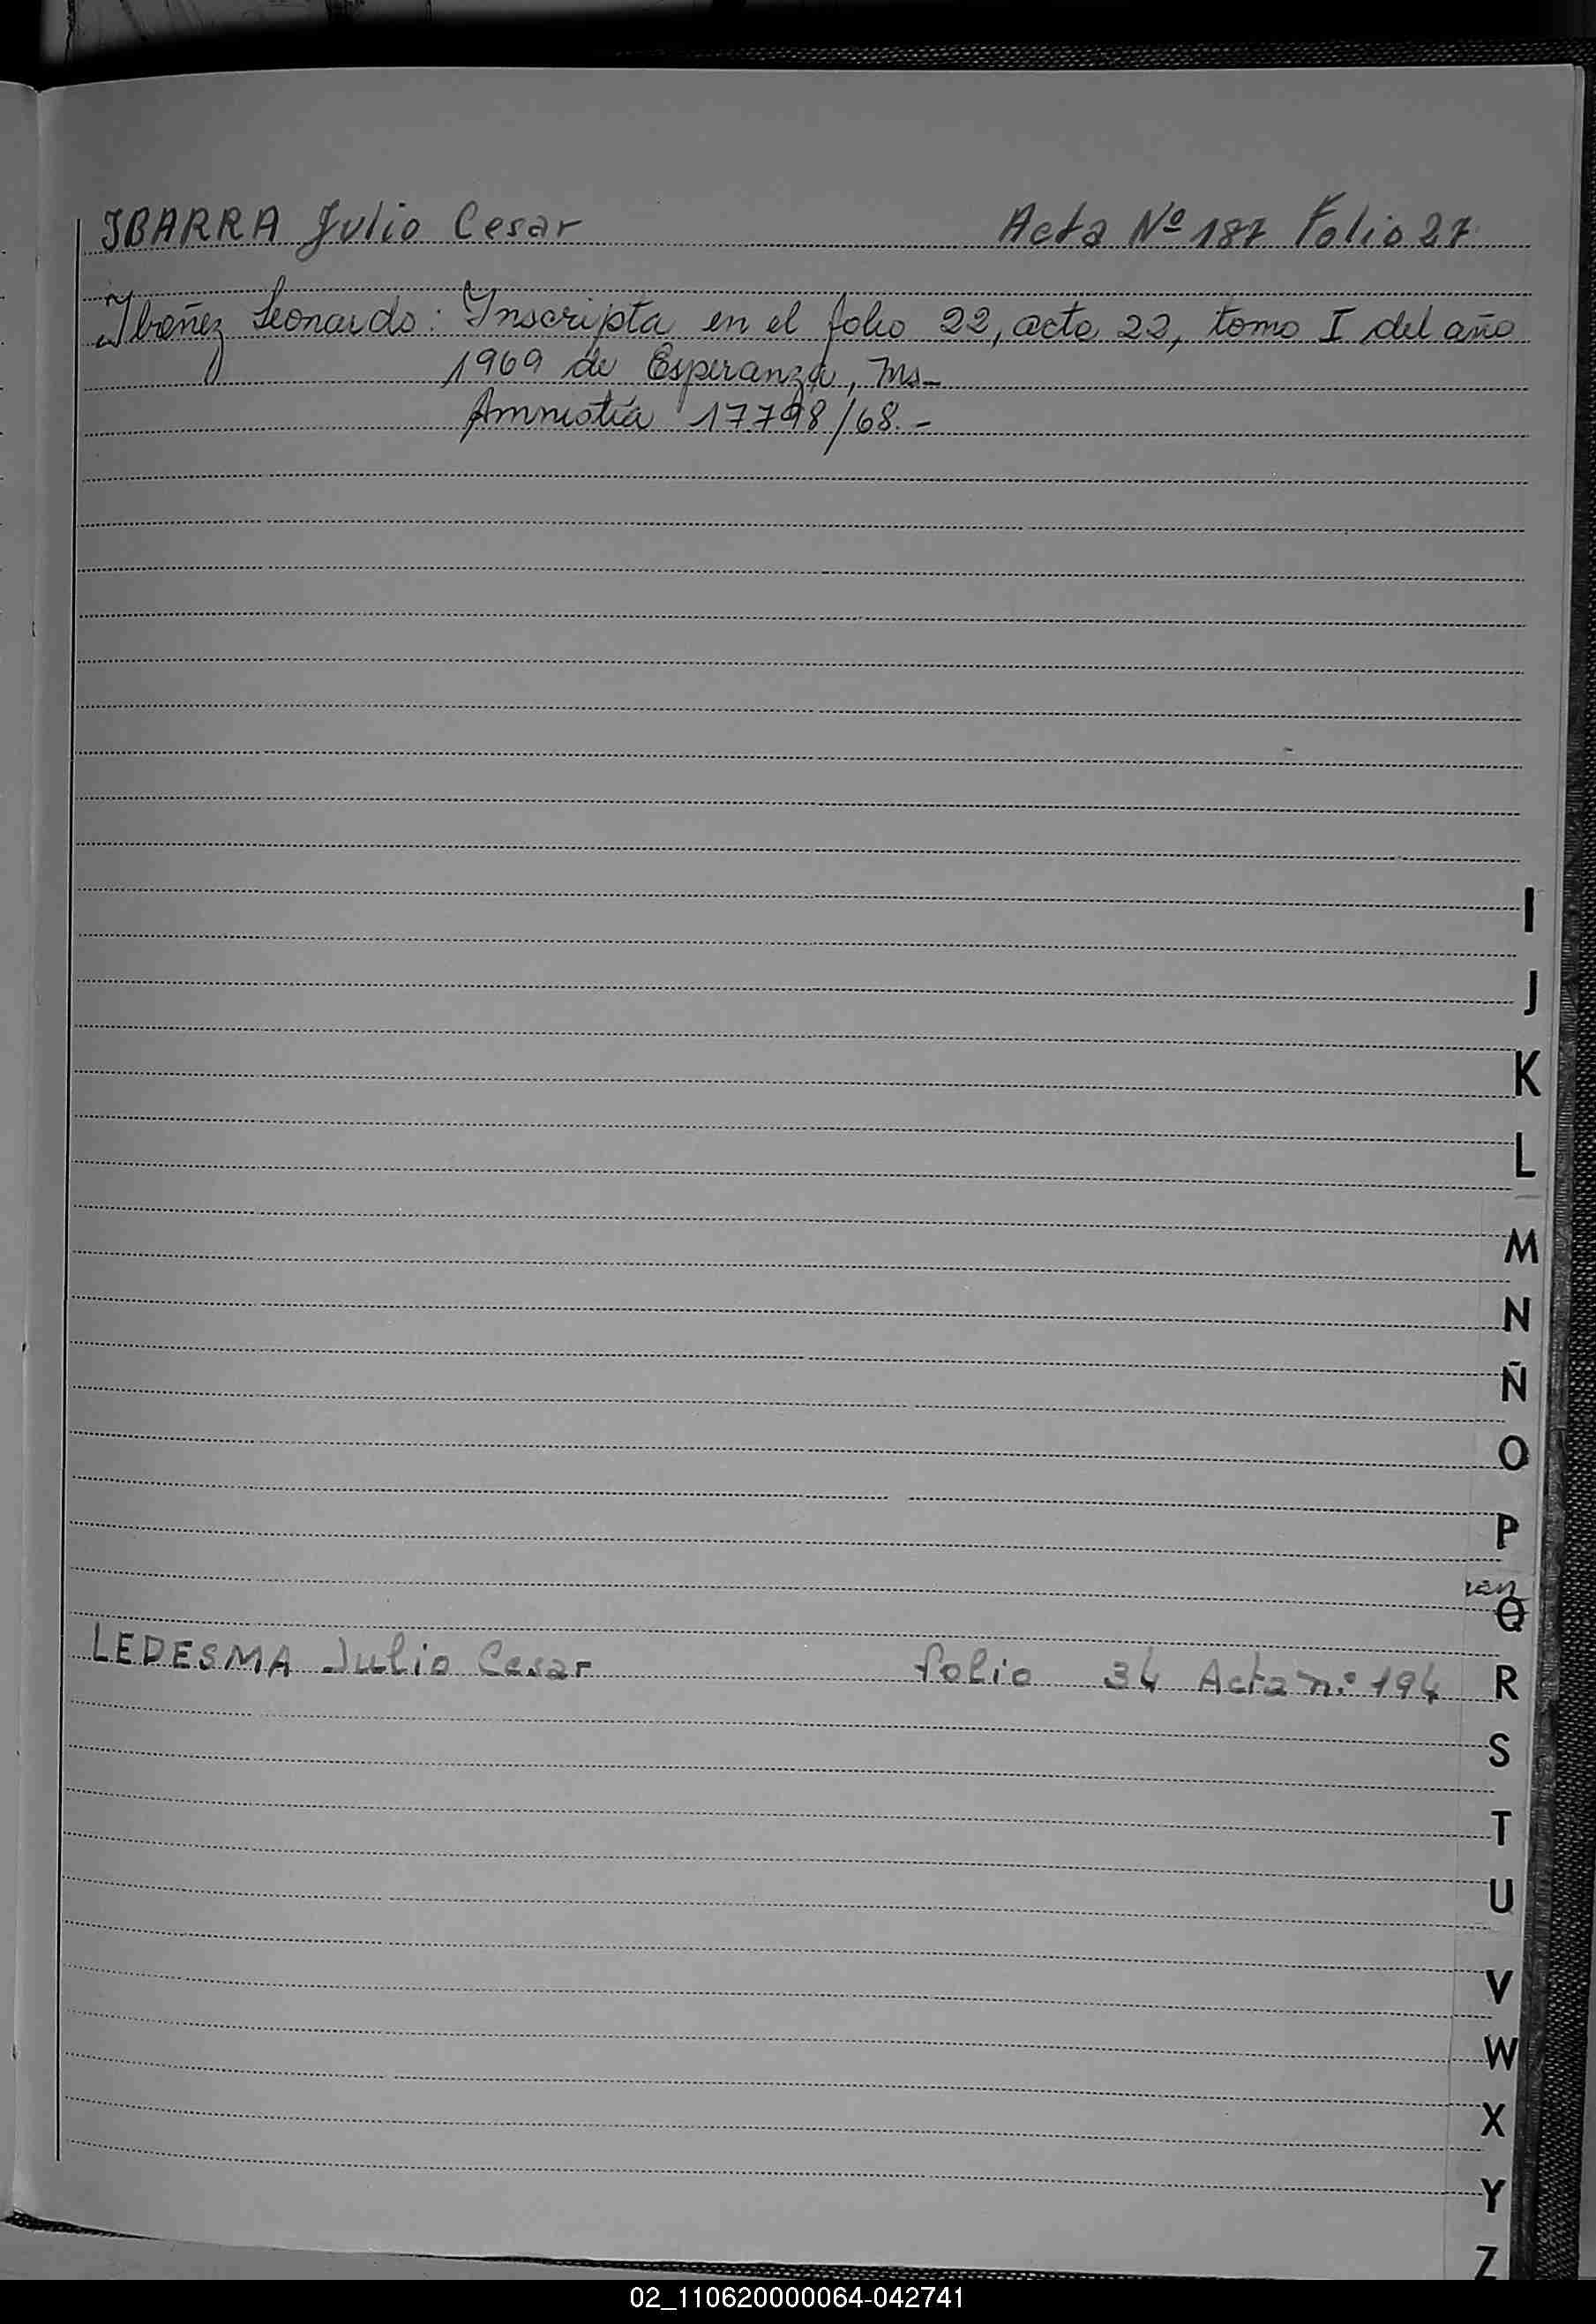 IBARRA Julio Cesar Acta Nº 187 Folio 27
Ibañez Leonardo: Inscripta en el folio 22, acta 22, tomo I del año
1969 de Esperanza, Ms-
Amnistía 17.798/68.-
I
J
K
L
M
N
Ñ
O
P
Q
LEDESMA Julio Cesar folio 34 Acta n.º 194
R
S
T
U
V
W
X
Y
Z
02_110620000064-042741